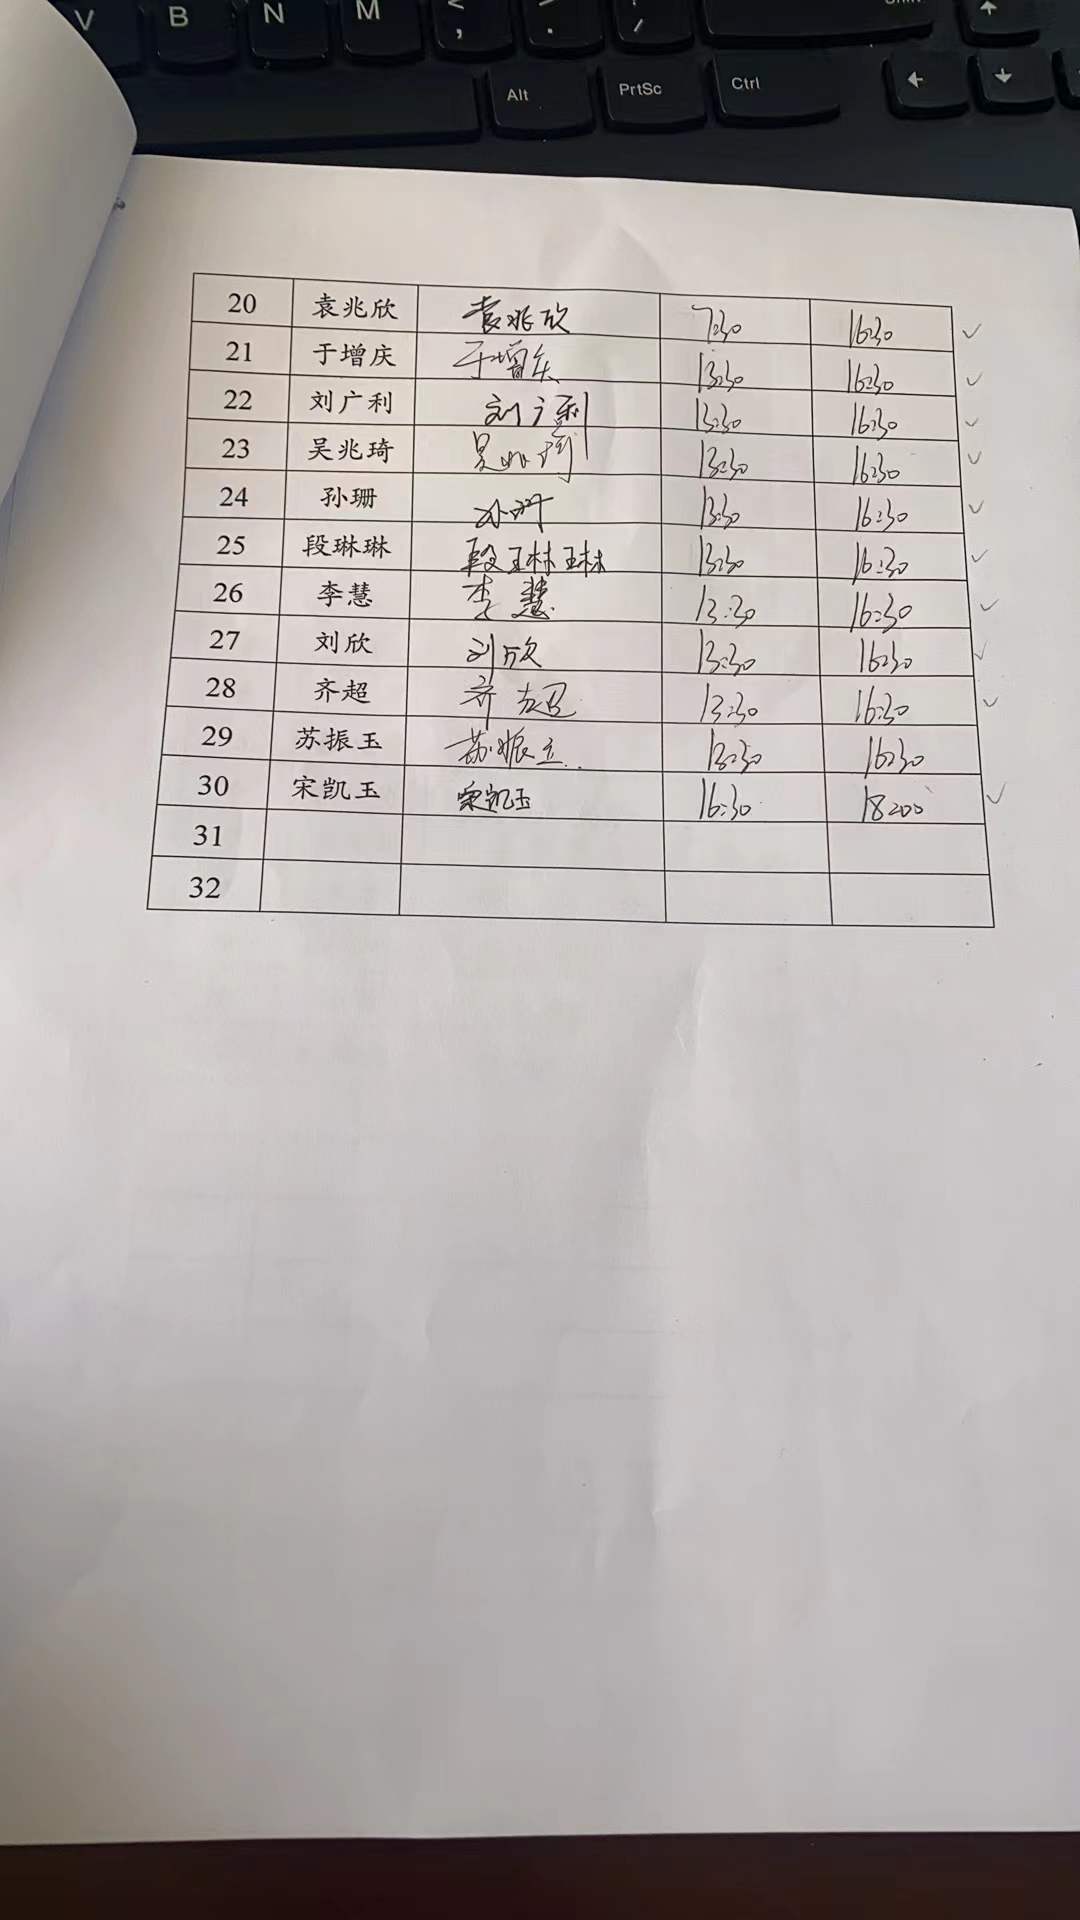 V B N M < , > . ? /
Alt PrtSc Ctrl ← ↓
20 袁兆欣 袁兆欣 7:30 16:30 ✓
21 于增庆 于增庆 13:30 16:30 ✓
22 刘广利 刘广利 13:30 16:30 ✓
23 吴兆琦 吴兆琦 13:30 16:30 ✓
24 孙珊 孙珊 13:30 16:30 ✓
25 段琳琳 段琳琳 13:30 16:30 ✓
26 李慧 李慧 13:30 16:30 ✓
27 刘欣 刘欣 13:30 16:30 ✓
28 齐超 齐超 13:30 16:30 ✓
29 苏振玉 苏振玉 13:30 16:30
30 宋凯玉 宋凯玉 16:30 18:00 ✓
31
32